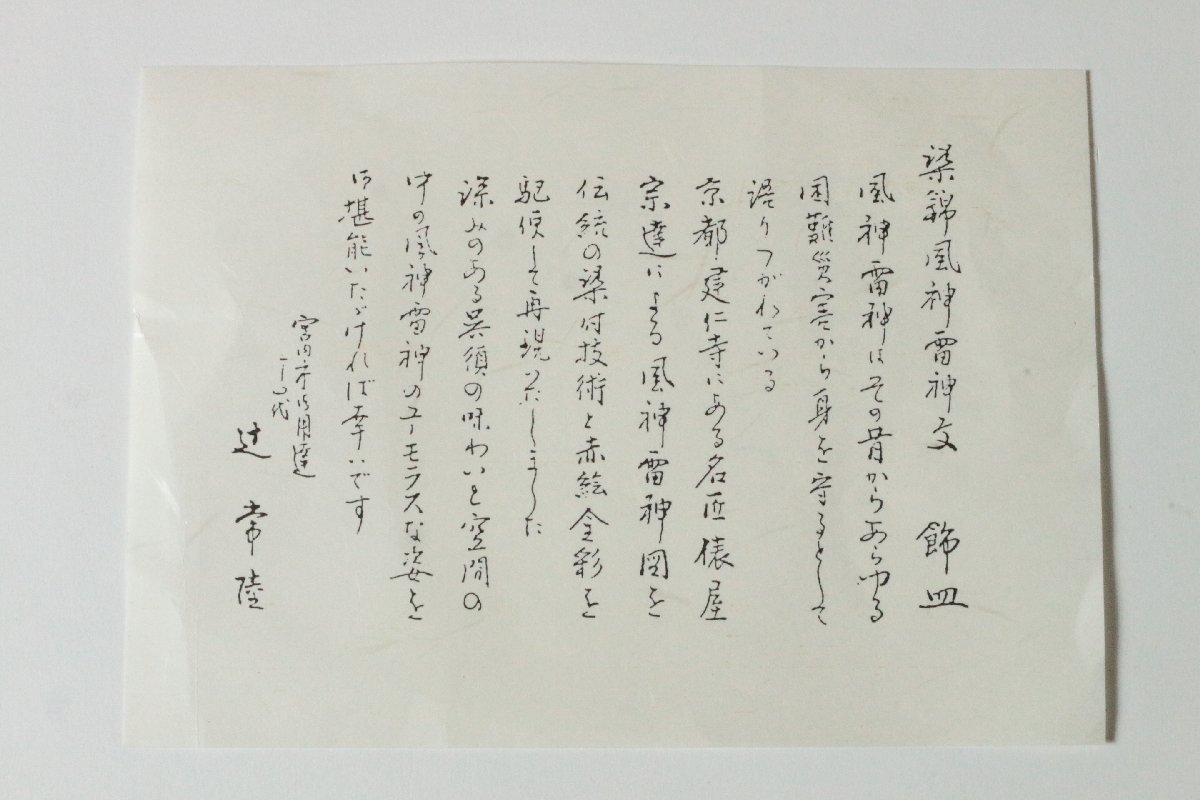 染錦風神雷神文 飾皿
風神雷神はその昔からあらゆる
困難災害から身を守るとして
語りつがれている
京都・建仁寺にある名匠俵屋
宗達による風神雷神図を
伝統の染付技術と赤絵金彩を
駆使して再現いたしました
深みのある呉須の味わいと空間の
中の風神雷神のユーモラスな姿を
御堪能いただければ幸いです
宮内庁御用達
十四代
辻 常陸